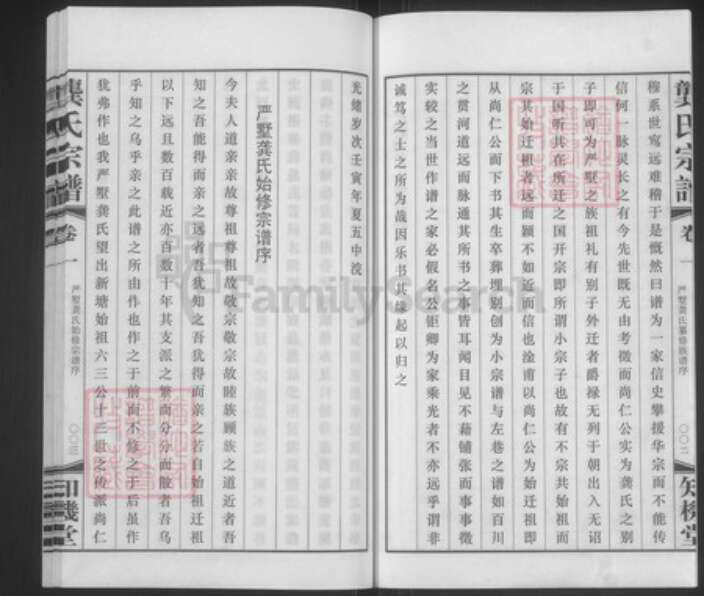 龔氏宗譜
卷一
严墅龚氏纂修族谱序
〇〇二
知機堂
穆系世写远难稽于是慨然曰谱为一家信史攀援华宗而不能传
信何一脉灵长之有今先世既无由考微而尚仁公实为龚氏之别
子即可为严墅之族祖礼有别子外迁者爵禄无列于朝出入无诏
于国听其在所迁之国开宗即所谓小宗子也故有不宗共始祖而
宗其始迁祖者远而踬不如近而信也淦甫以尚仁公为始迁祖即
从尚仁公而下书其生卒葬埋别创为小宗谱与左巷之谱如百川
之贯河道远而脉通其所书之事皆耳闻目见不藉铺张而事事徵
实较之当世作谱之家必假名公钜卿为家乘光者不亦远乎谓非
诚笃之士之所为哉因乐书其缘起以归之
光绪岁次壬寅年夏五中浣
严墅龚氏始修宗谱序
今夫人道亲亲故尊祖尊祖故敬宗敬宗故睦族顾族之道近者吾
知之吾能得而亲之远者吾犹知之吾犹得而亲之若自始祖迁祖
以下远且数百载近亦百数十年其支派之繁而分分而睽者吾乌
乎知之乌乎亲之此谱之所由作也作之于前而不修之于后虽作
犹弗作也我严墅龚氏望出新塘始祖六三公十三世之传派尚仁
龔氏宗譜
卷一
严墅龚氏始修宗谱序
〇〇三
知機堂
FamilySearch